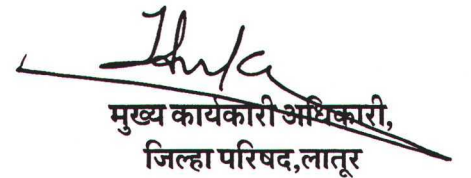 मुख्य कार्यकारी अधिकारी,
जिल्हा परिषद,लातूर